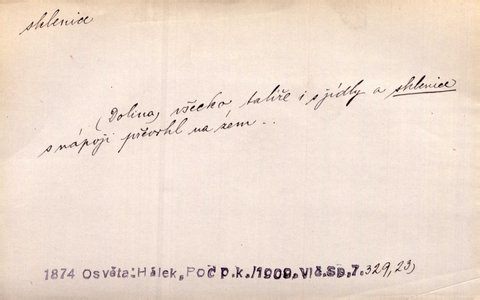 sklenice
(Dolina) všecko talíře i s jídly a sklenice
s nápoji převrhl na zem..
1874 Osvěta: Hálek, Poč p.k./1909, V1č.Sp.7. 329,23)